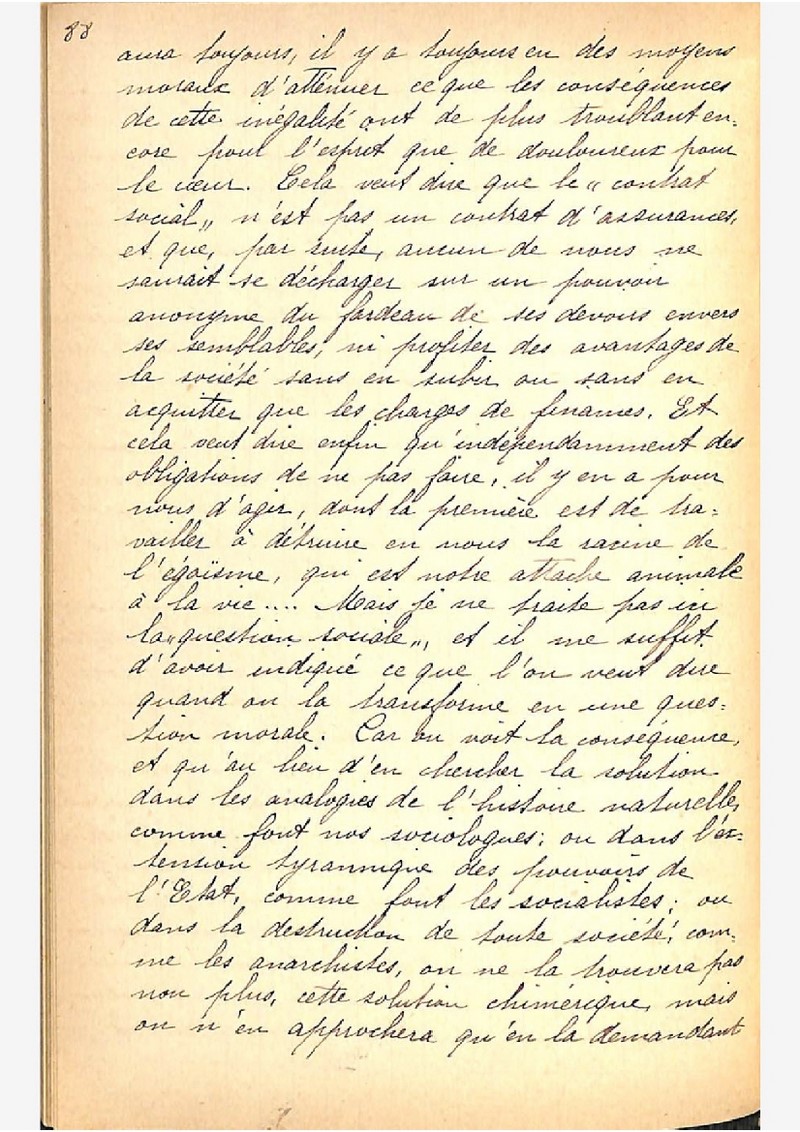 88
aura toujours, il y a toujours eu des moyens
moraux d'atténuer ce que les conséquences
de cette inégalité ont de plus troublant en=
core pour l'esprit que de douloureux pour
le cœur. Cela veut dire que le „ contrat
social „ n'est pas un contrat d'assurances,
et que, par suite, aucun de nous ne
saurait se décharger sur un pouvoir
anonyme du fardeau de ses devoirs envers
ses semblables, ni profiter des avantages de
la société sans en subir ou sans en
acquitter que les charges de finances. Et
cela veut dire enfin qu'indépendamment des
obligations de ne pas faire, il y en a pour
nous d'agir, dont la première est de tra=
vailler à détruire en nous la racine de
l'égoïsme, qui est notre attache animale
à la vie.... Mais je ne traite pas ici
la „ question sociale „, et il me suffit
d'avoir indiqué ce que l'on veut dire
quand on la transforme en une ques=
tion morale. Car on voit la conséquence,
et qu'au lieu d'en chercher la solution
dans les analogies de l'histoire naturelle,
comme font nos sociologues; ou dans l'ex=
tension tyrannique des pouvoirs de
l'Etat, comme font les socialistes; ou
dans la destruction de toute société, com=
me les anarchistes, on ne la trouvera pas
non plus, cette solution chimérique, mais
on n'en approchera qu'en la demandant